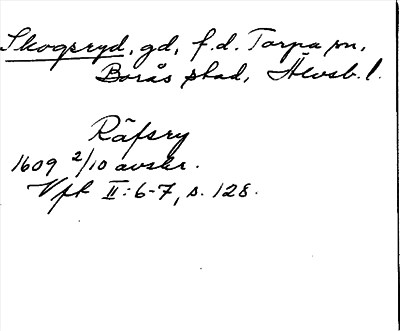 Skogsryd, gd, f.d. Torpa sn,
Borås stad, Älvsb. l.
Räfsry
1609 2/10 avskr.
Vfk II:6-7, s. 128.